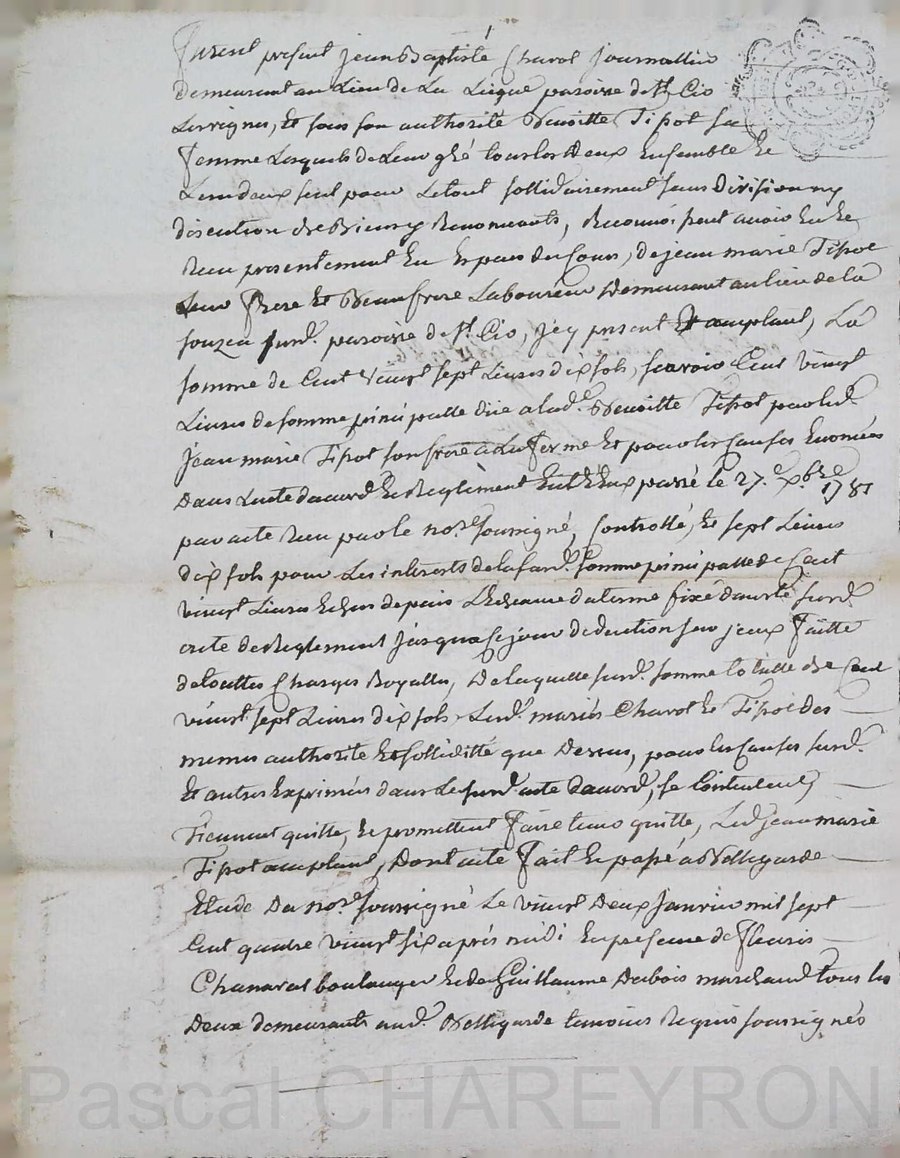 Furent present jean Baptiste Charot journallier
demeurant au Lieu de La paroisse de St Cio
Lerrignes, et sous son authorité Benoitte Tipot sa
femme Lesquels de Leur gré tous les deux Ensemble et
L'un deux seul pour Le tout sollidairement sans Division ny
discution de Bien y Renonceants, Reconnoissent avoir Eu et
Receu presentement En Espaces de Cours, de jean marie Tipot
Leur frere Et Beaufrere Laboureur Demeurant au lieu de la
souzea surd. paroisse de St Cio, jcy present Et acceptant, La
somme de Cent Vingt sept Livres dix sols, scavoir Cent Vingt
Livres de somme principalle düe a lad.e Benoitte Tipot par led.
Jean marie Tipot son frere a La forme Et pour les Causes Enoncées
Dans Lacte daccord Et Reglement Entr'Eux passé le 27.e xbre 1781
par acte Receu par le nore soussigné, Controllé, Et sept Livres
dix sols pour Les interests de la surd. somme principalle de Cent
vingt Livres Echus depuis L'Echeance du terme fixé dans le surd.
acte de Reglement jusqua ce jour deduction sur jceux faitte
de touttes Charges Royalles, De laquelle surd. somme totalle de Cent
vingt sept Livres dix sols Lesd. mariés Charot Et Tipot des
memes authorité Et solliditté que Dessus, pour les Causes surd.
Et autres Exprimées dans Le surd. acte daccord, se Contentent,
Tiennent quitte, Et promettent faire tenir quitte, Led. jean marie
Tipot acceptant, Dont acte fait Et passé a Bellegarde
Etude Du nore soussigné Le vingt Deux Janvier mil sept
Cent quatre vingt six aprés midi En presence de fleuris
Chanavat boulanger Et de Guillaume Dubois marchand tous les
Deux demeurants aud. Bellegarde temoins Requis soussignés
Pascal CHAREYRON